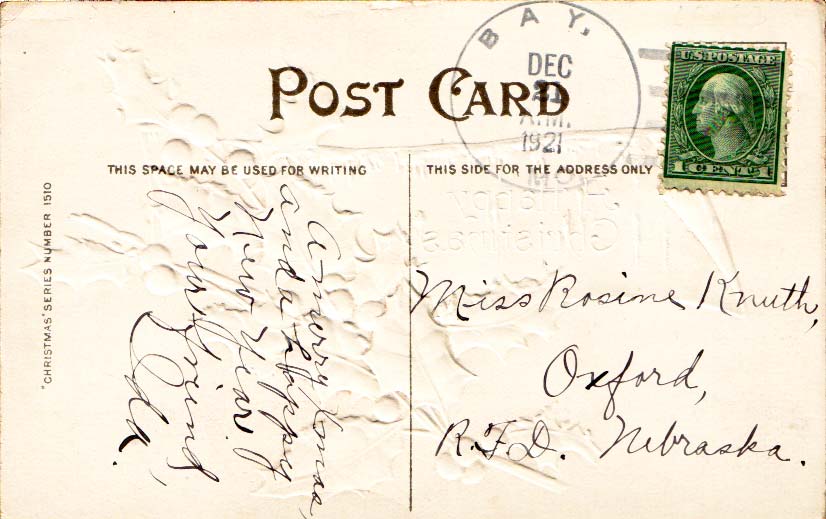 POST CARD
BAY,
DEC
21
A.M.
1921
MO.
U.S. POSTAGE
1 CENT 1
THIS SPACE MAY BE USED FOR WRITING
THIS SIDE FOR THE ADDRESS ONLY
"CHRISTMAS" SERIES NUMBER 1510
A Happy
Christmas
A merry Xmas,
and a happy
New Year.
Your Friend,
Ida.
Miss Rosine Knuth,
Oxford,
R.F.D. Nebraska.